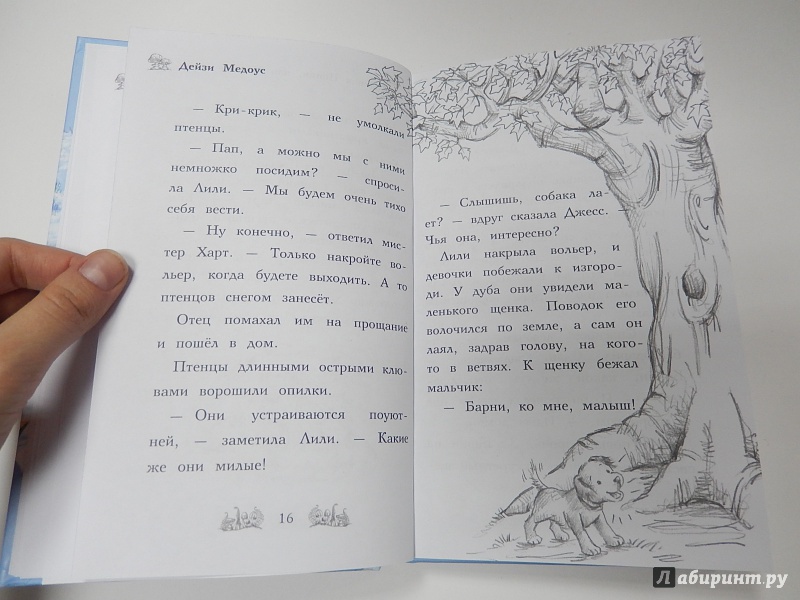 Дейзи Медоус
— Кри-крик, — не умолкали
птенцы.
— Пап, а можно мы с ними
немножко посидим? — спроси-
ла Лили. — Мы будем очень тихо
себя вести.
— Ну конечно, — ответил мис-
тер Харт. — Только накройте во-
льер, когда будете выходить. А то
птенцов снегом занесёт.
Отец помахал им на прощание
и пошёл в дом.
Птенцы длинными острыми клю-
вами ворошили опилки.
— Они устраиваются поуют-
ней, — заметила Лили. — Какие
же они милые!
16
— Слышишь, собака ла-
ет? — вдруг сказала Джесс. —
Чья она, интересно?
Лили накрыла вольер, и
девочки побежали к изгоро-
ди. У дуба они увидели ма-
ленького щенка. Поводок его
волочился по земле, а сам он
лаял, задрав голову, на кого-
то в ветвях. К щенку бежал
мальчик:
— Барни, ко мне, малыш!
Лабиринт.ру